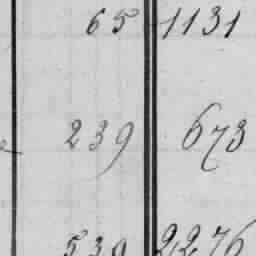 65 1131
239 673
539 2276